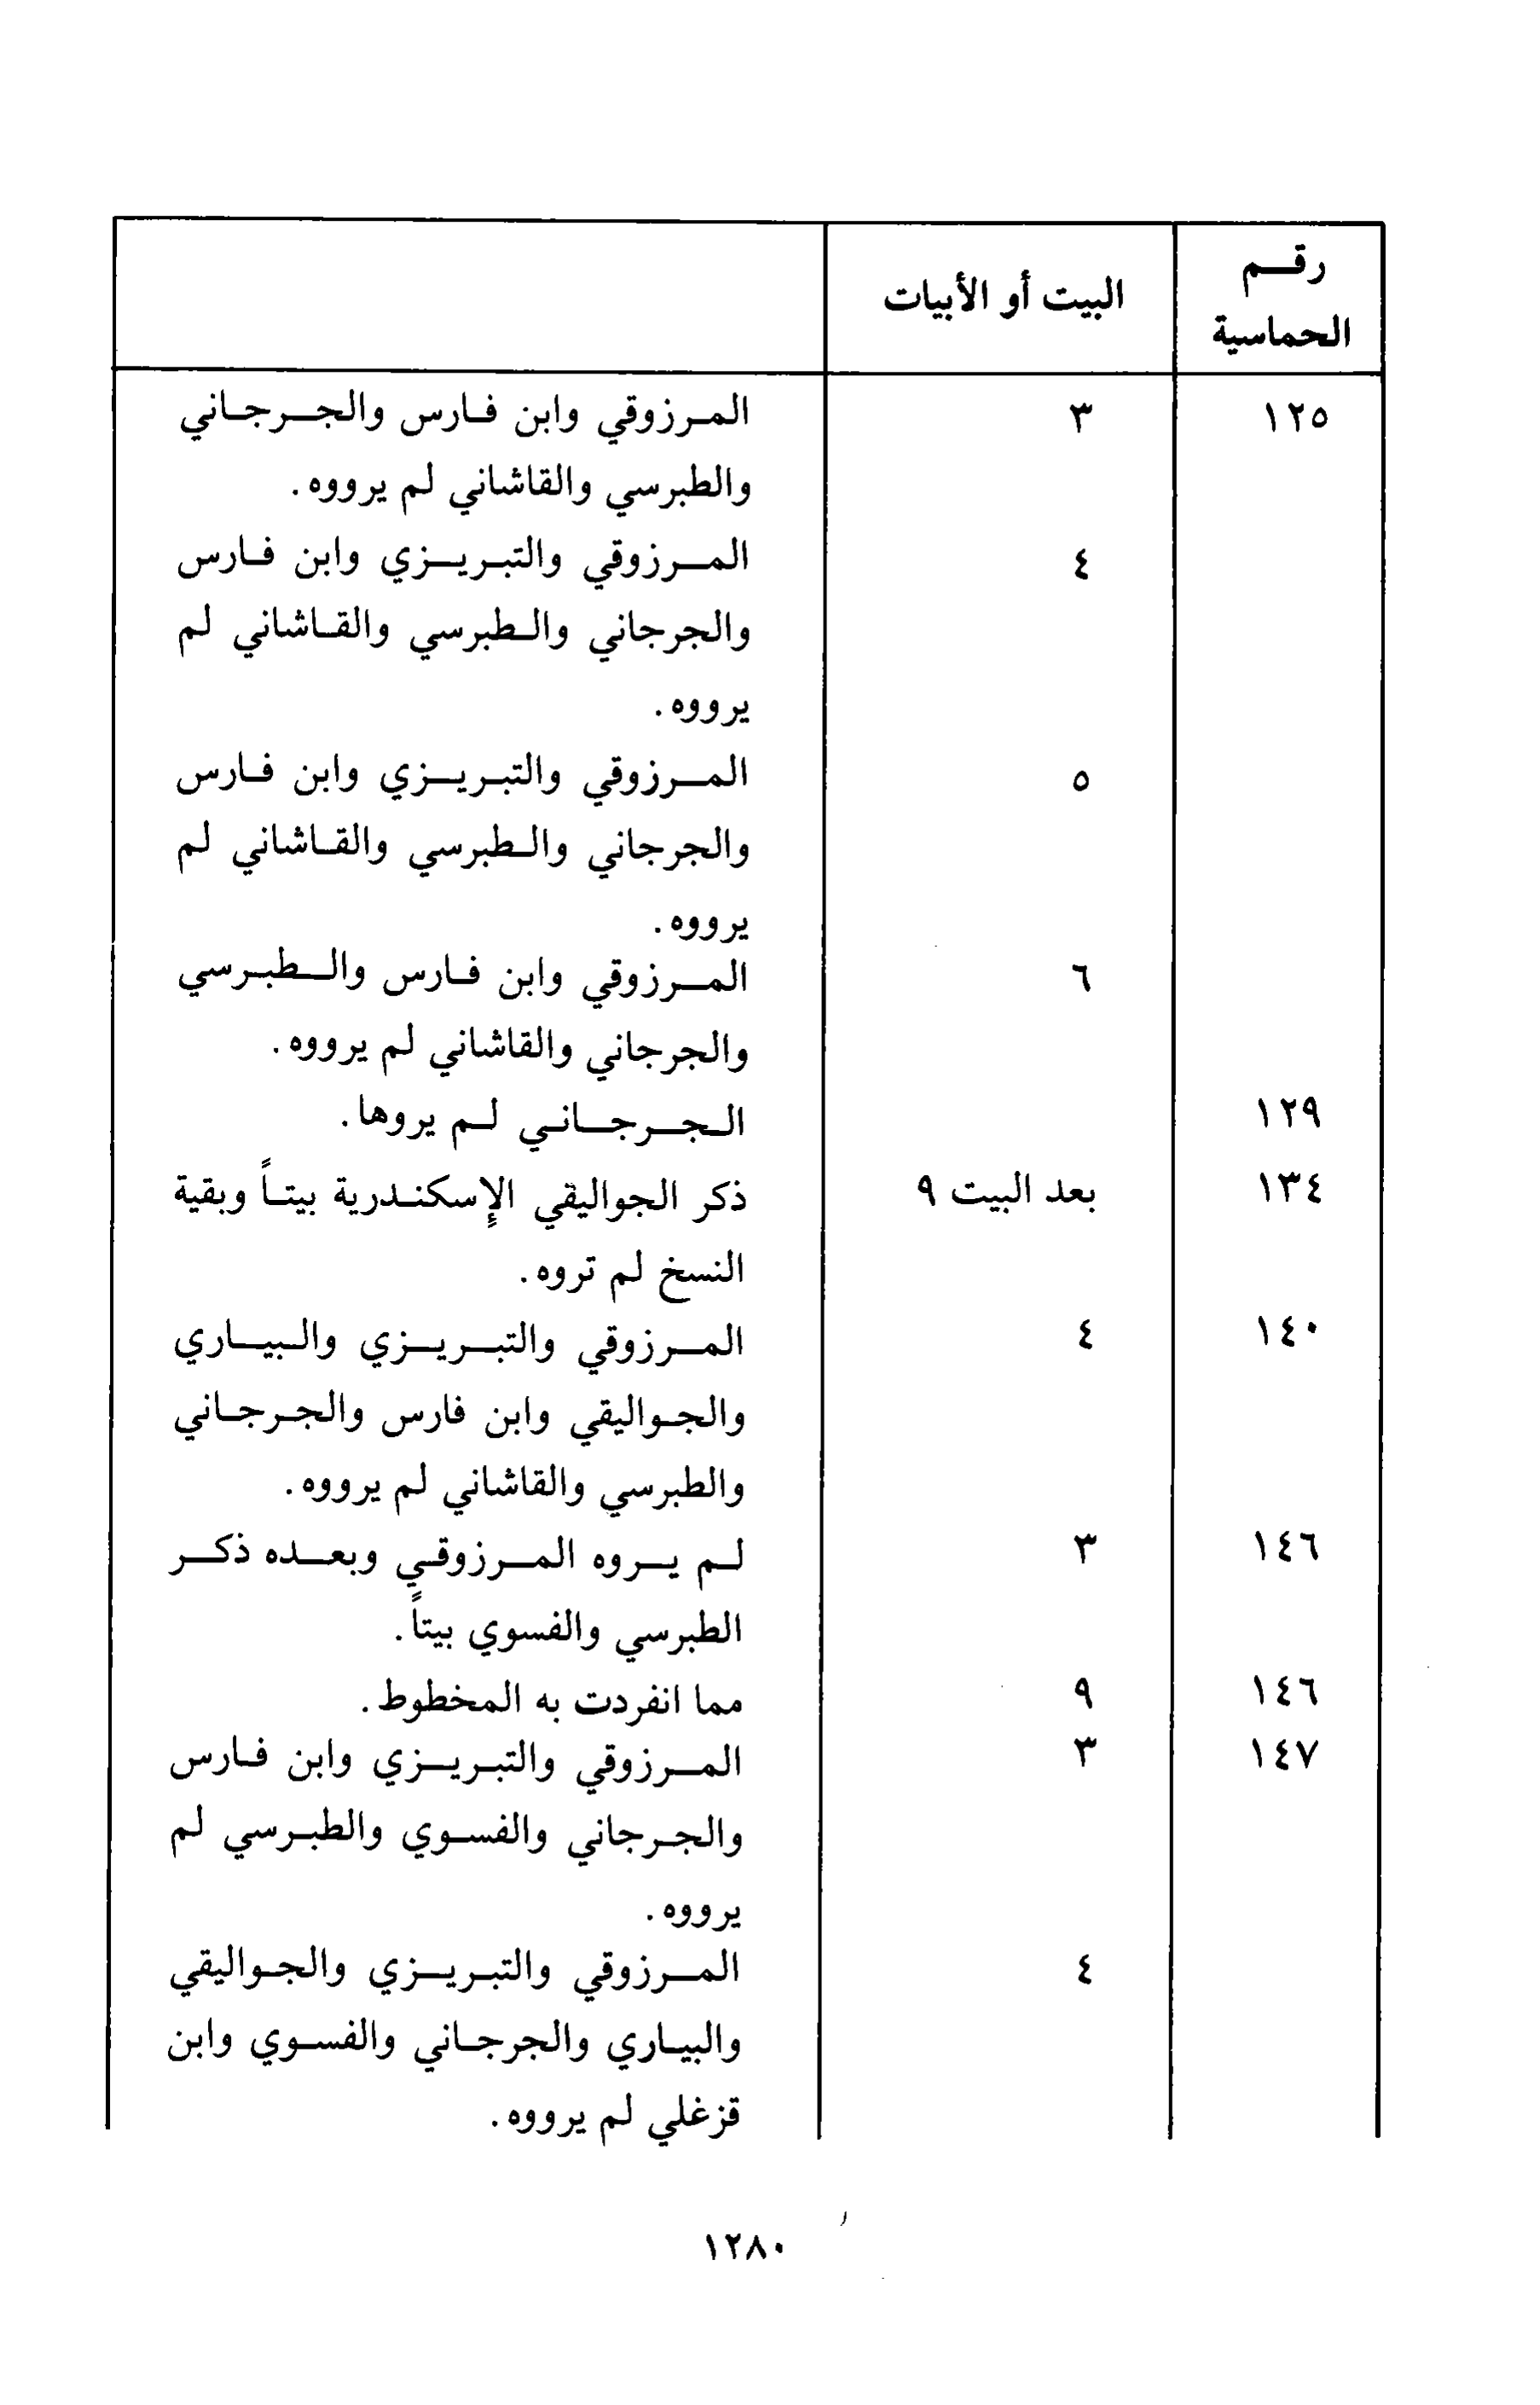 رقم
الحماسية
البيت أو الأبيات
١٢٥ ٣ المرزوقي وابن فارس والجرجاني
والطبرسي والقاشاني لم يرووه.
٤ المرزوقي والتبريزي وابن فارس
والجرجاني والطبرسي والقاشاني لم
يرووه.
٥ المرزوقي والتبريزي وابن فارس
والجرجاني والطبرسي والقاشاني لم
يرووه.
٦ المرزوقي وابن فارس والطبرسي
والجرجاني والقاشاني لم يرووه.
١٢٩ الجرجاني لم يروها.
١٣٤ بعد البيت ٩ ذكر الجواليقي الإسكندرية بيتاً وبقية
النسخ لم تروه.
١٤٠ ٤ المرزوقي والتبريزي والبياري
والجواليقي وابن فارس والجرجاني
والطبرسي والقاشاني لم يرووه.
١٤٦ ٣ لم يروه المرزوقي وبعده ذكر
الطبرسي والفسوي بيتاً.
١٤٦ ٩ مما انفردت به المخطوط.
١٤٧ ٣ المرزوقي والتبريزي وابن فارس
والجرجاني والفسوي والطبرسي لم
يرووه.
٤ المرزوقي والتبريزي والجواليقي
والبياري والجرجاني والفسوي وابن
قزغلي لم يرووه.
١٢٨٠